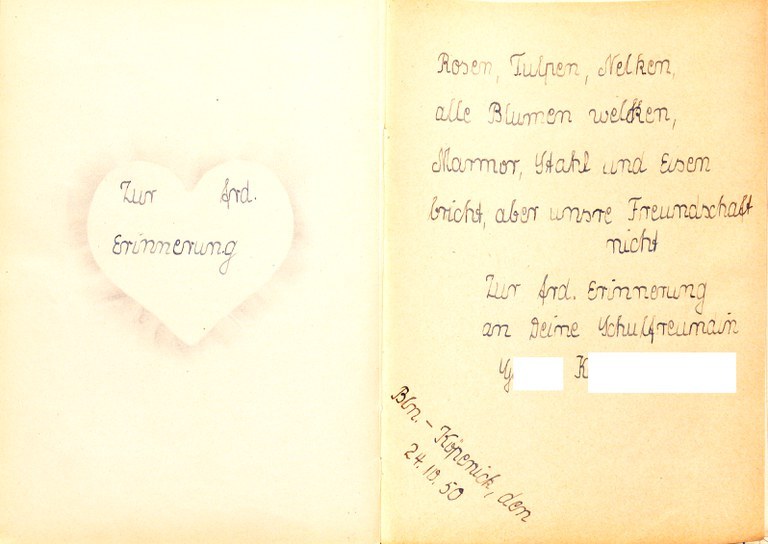 Zur frd.
Erinnerung
Rosen, Tulpen, Nelken,
alle Blumen welken,
Marmor, Stahl und Eisen
bricht, aber unsre Freundschaft
nicht
Zur frd. Erinnerung
an Deine Schulfreundin
G K
Bln. - Köpenick, den
24.10.50